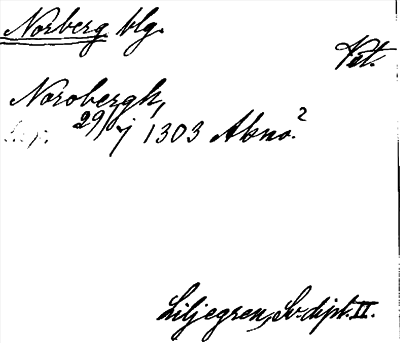 Norberg blg.
Vet.
Norobergh,
29/ 1303 Akno.2
Liljegren, Sv. dipl. II.